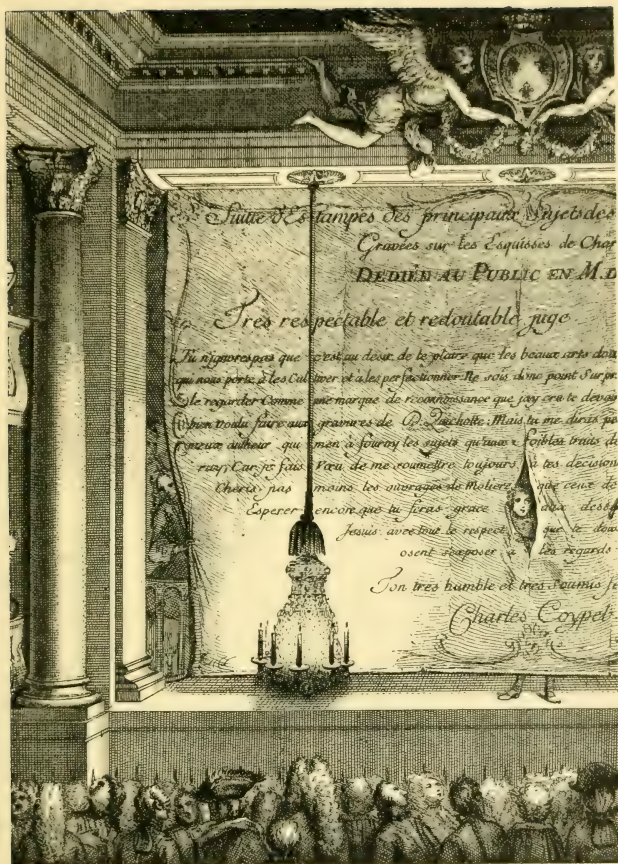 Suitte d'Estampes des principaux Sujets des
Gravées sur les Esquisses de Char
DEDIÉE AU PUBLIC EN M.D
Tres respectable et redoutable juge
Tu n'ignores pas que c'est au désir de te plaire que les beaux arts doi
qui nous porte à les Cultiver et à les perfectionner Ne sois donc point Surpr
le regarder Comme une marque de reconnoissance que j'ay cru te devoir
bien voulu faire aux gravures de D. Quichotte. Mais tu me diras pe
autheur qui m'en à fourny les sujets qu'aux foibles traits de
ray; Car je fais Voeu de me soumettre toujours à tes decisions
Cheris pas moins les ouvrages de Moliere que ceux de
Esperer encore que tu feras grace aux dess
Jesuis avec tout le respect que te doiv
osent s'exposer à tes regards
Ton tres humble et tres soumis Se
Charles Coypel